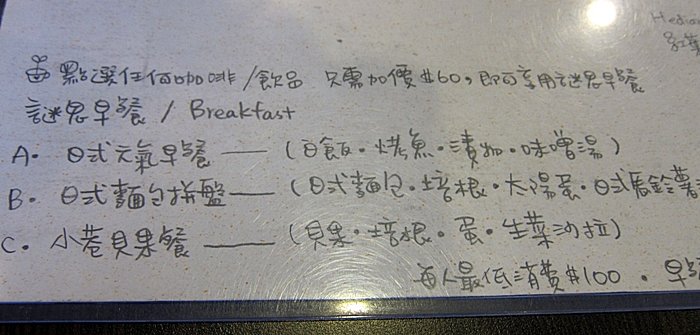 Media
點選任何咖啡/飲品 只需加價$60,即可享用謎思早餐
謎思早餐 / Breakfast
A. 日式元氣早餐 —— (白飯·烤魚·漬物·味噌湯)
B. 日式麵包拼盤 —— (日式麵包·培根·太陽蛋·日式馬鈴薯
C. 小巷貝果餐 —— (貝果·培根·蛋·生菜沙拉)
每人最低消費$100 · 早餐